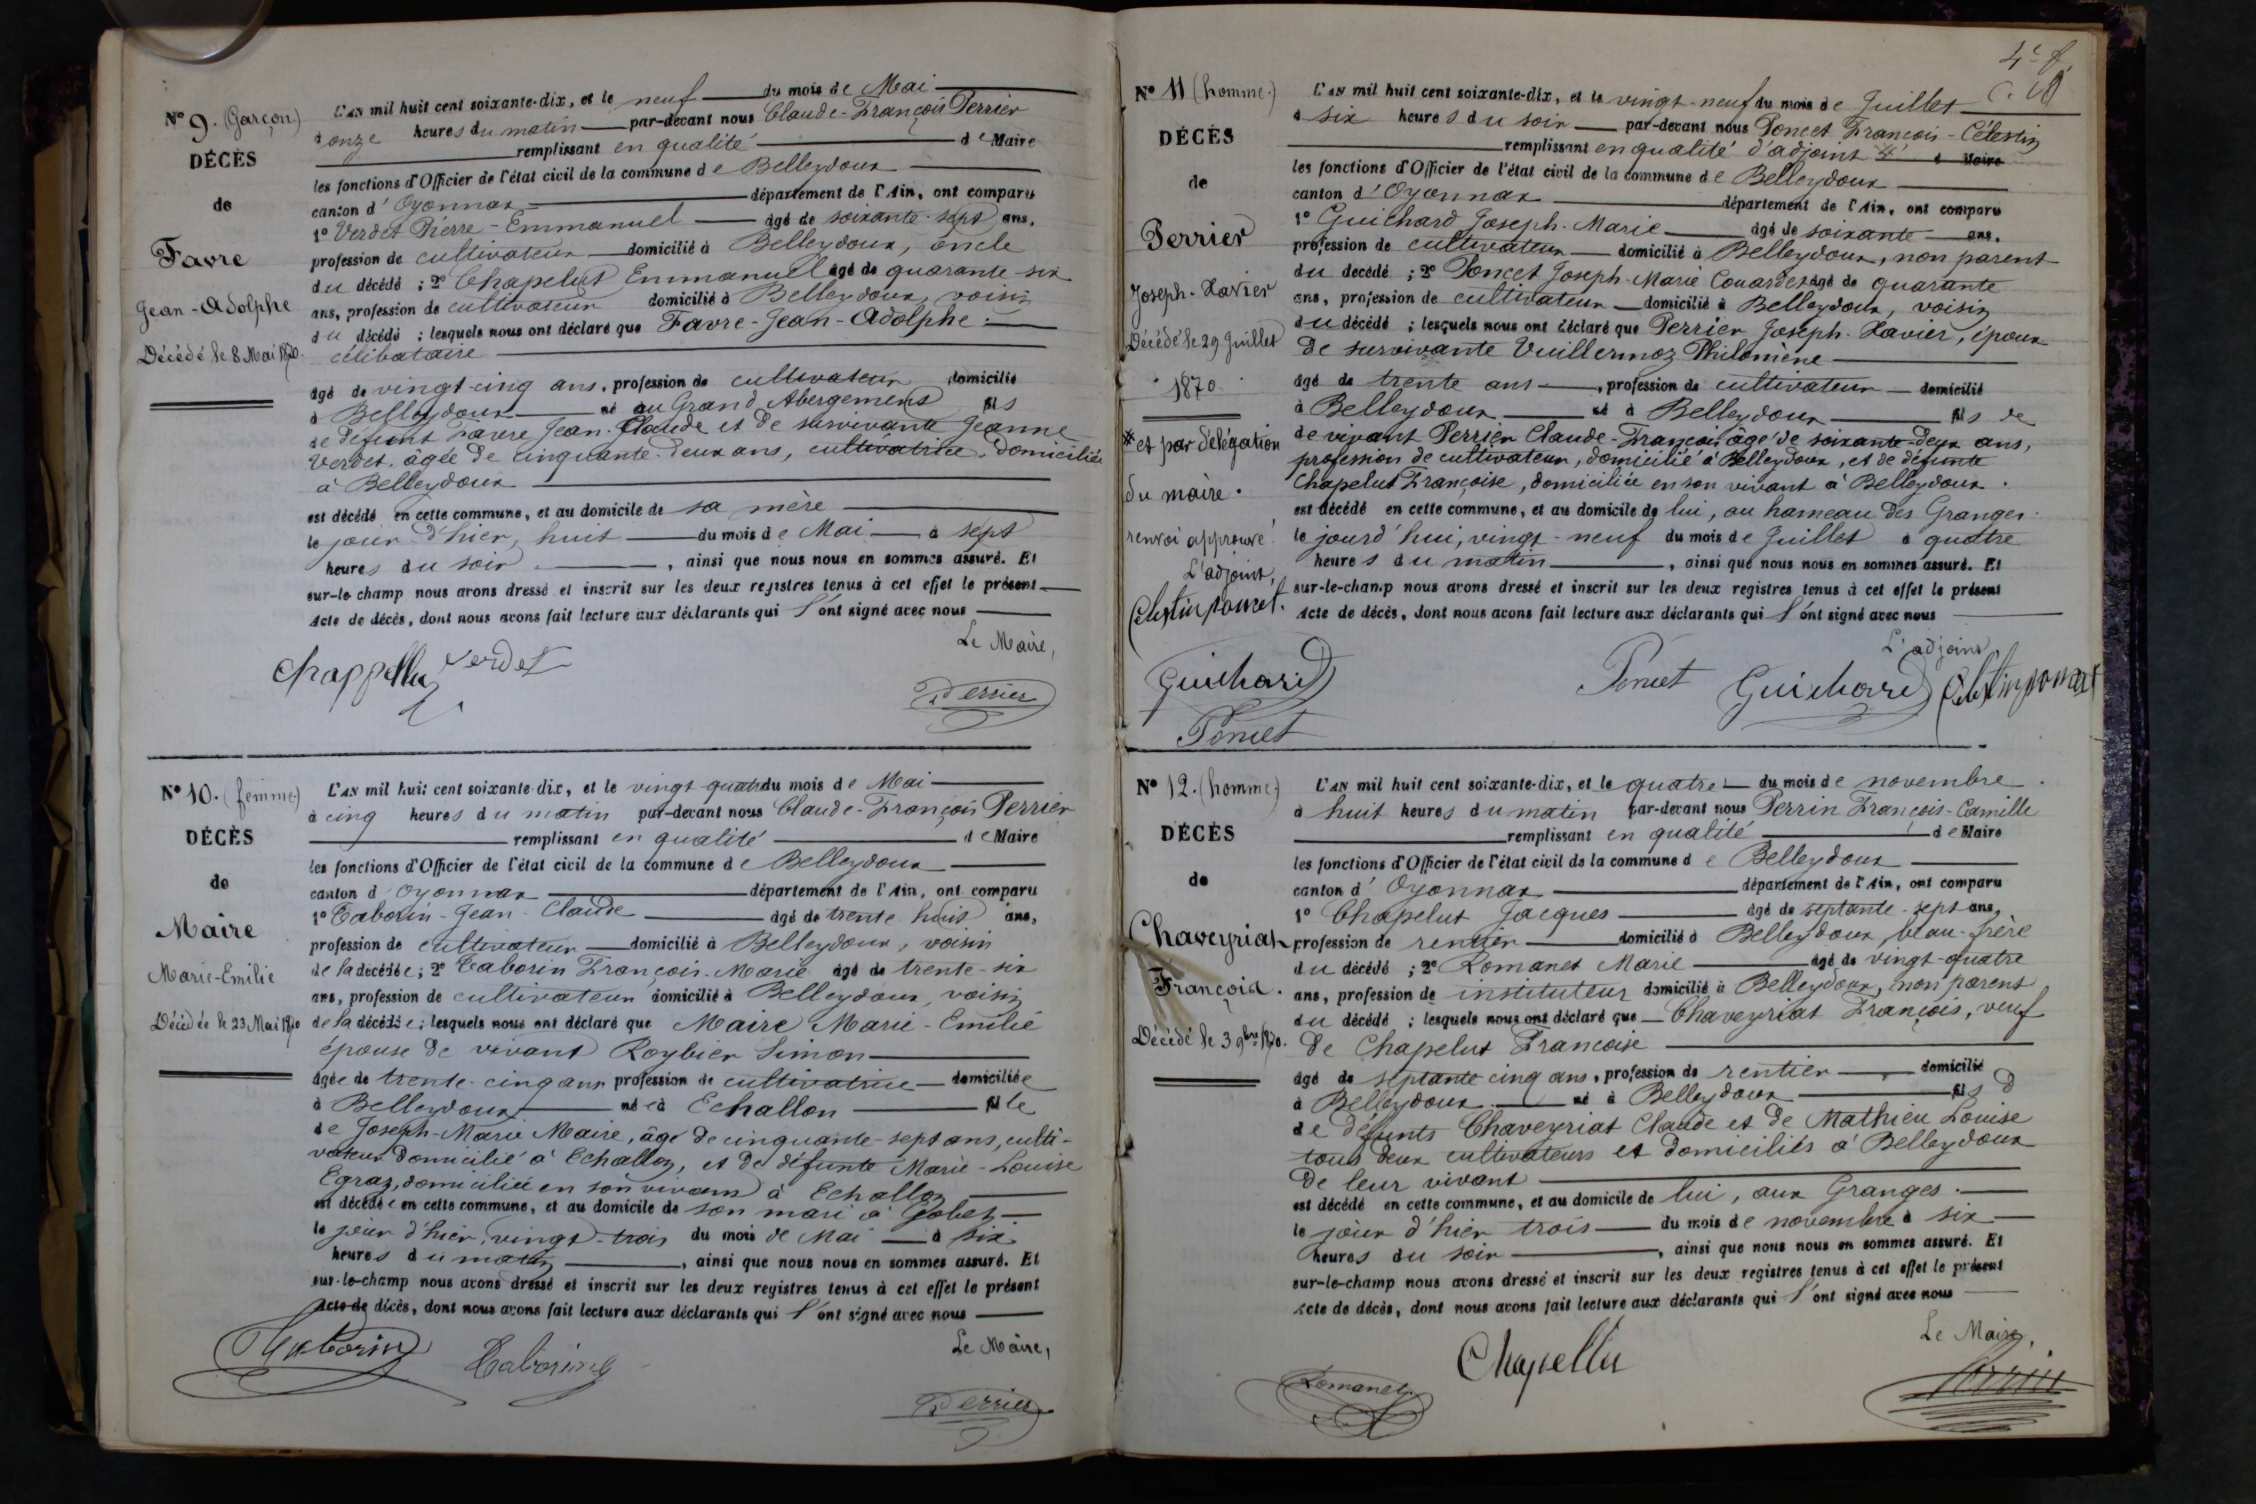 Nº 9. (Garçon)
DÉCÈS
de
Favre
Jean-Adolphe
Décédé le 8 Mai 1870.
L'AN mil huit cent soixante-dix, et le neuf du mois de Mai
à onze heures du matin par-devant nous Claude-François Perrier
remplissant en qualité de Maire
les fonctions d'Officier de l'état civil de la commune de Belleydoux
canton d'Oyonnax département de l'Ain, ont comparu
1º Verdet Pierre-Emmanuel âgé de soixante-sept ans,
profession de cultivateur domicilié à Belleydoux, oncle
du décédé ; 2º Chapelut Emmanuel âgé de quarante-six
ans, profession de cultivateur domicilié à Belleydoux, voisin
du décédé ; lesquels nous ont déclaré que Favre-Jean-Adolphe.
célibataire
âgé de vingt-cinq ans, profession de cultivateur domicilié
à Belleydoux né au Grand Abergement fils
de défunt Favre Jean-Claude et de survivante Jeanne
Verdet, âgée de cinquante-deux ans, cultivatrice, domiciliée
à Belleydoux
est décédé en cette commune, et au domicile de sa mère
le jour d'hier, huit du mois de Mai à sept
heures du soir, ainsi que nous nous en sommes assuré. Et
sur-le-champ nous avons dressé et inscrit sur les deux registres tenus à cet effet le présent
Acte de décès, dont nous avons fait lecture aux déclarants qui l'ont signé avec nous
Le Maire,
Chappellu Verdet
Perrier
Nº 10. (femme)
DÉCÈS
de
Maire
Marie-Emilie
Décédée le 23 Mai 1870
L'AN mil huit cent soixante-dix, et le vingt-quatre du mois de Mai
à cinq heures du matin par-devant nous Claude-François Perrier
remplissant en qualité de Maire
les fonctions d'Officier de l'état civil de la commune de Belleydoux
canton d'Oyonnax département de l'Ain, ont comparu
1º Taborin-Jean-Claude âgé de trente-huit ans,
profession de cultivateur domicilié à Belleydoux, voisin
de la décédée ; 2º Taborin François-Marie âgé de trente-six
ans, profession de cultivateur domicilié à Belleydoux, voisin
de la décédée ; lesquels nous ont déclaré que Maire Marie-Emilie
épouse de vivant Roybier Simon
âgée de trente-cinq ans profession de cultivatrice domiciliée
à Belleydoux née à Echallon fille
de Joseph-Marie Maire, âgé de cinquante-sept ans, culti-
vateur domicilié à Echallon, et de défunte Marie-Louise
Egraz, domiciliée en son vivant à Echallon
est décédée en cette commune, et au domicile de son mari à Gobet
le jour d'hier, vingt-trois du mois de Mai à six
heures du matin, ainsi que nous nous en sommes assuré. Et
sur-le-champ nous avons dressé et inscrit sur les deux registres tenus à cet effet le présent
Acte de décès, dont nous avons fait lecture aux déclarants qui l'ont signé avec nous
Le Maire,
Taborin Taborin
Perrier
4e f.
Nº 11 (homme.)
DÉCÈS
de
Perrier
Joseph-Xavier
Décédé le 29 Juillet
1870.
* et par délégation
du maire.
renvoi approuvé.
L'adjoint,
Célestin poncet.
Guichard
Poncet
L'AN mil huit cent soixante-dix, et le vingt-neuf du mois de Juillet
à six heures du soir par-devant nous Poncet François-Célestin
remplissant en qualité d'adjoint * d Maire
les fonctions d'Officier de l'état civil de la commune de Belleydoux
canton d'Oyonnax département de l'Ain, ont comparu
1º Guichard Joseph-Marie âgé de soixante ans,
profession de cultivateur domicilié à Belleydoux, non parent
du décédé ; 2º Poncet Joseph-Marie Couardet âgé de quarante
ans, profession de cultivateur domicilié à Belleydoux, voisin
du décédé ; lesquels nous ont déclaré que Perrier Joseph-Xavier, époux
de survivante Vuillermoz Philomène
âgé de trente ans, profession de cultivateur domicilié
à Belleydoux né à Belleydoux fils de
de vivant Perrier Claude-François, âgé de soixante-deux ans,
profession de cultivateur, domicilié à Belleydoux, et de défunte
Chapelut Françoise, domiciliée en son vivant à Belleydoux.
est décédé en cette commune, et au domicile de lui, au hameau des Granges.
le jourd'hui, vingt-neuf du mois de Juillet à quatre
heures du matin, ainsi que nous nous en sommes assuré. Et
sur-le-champ nous avons dressé et inscrit sur les deux registres tenus à cet effet le présent
Acte de décès, dont nous avons fait lecture aux déclarants qui l'ont signé avec nous
L'adjoint
Poncet Guichard Célestin poncet
Nº 12. (homme)
DÉCÈS
de
Chaveyriat
François.
Décédé le 3 9bre 1870.
L'AN mil huit cent soixante-dix, et le quatre du mois de novembre
à huit heures du matin par-devant nous Perrin François-Camille
remplissant en qualité de Maire
les fonctions d'Officier de l'état civil de la commune de Belleydoux
canton d'Oyonnax département de l'Ain, ont comparu
1º Chapelut Jacques âgé de septante-sept ans,
profession de rentier domicilié à Belleydoux, beau-frère
du décédé ; 2º Romanet Marie âgé de vingt-quatre
ans, profession de instituteur domicilié à Belleydoux, non parent
du décédé ; lesquels nous ont déclaré que Chaveyriat François, veuf
de Chapelut Françoise
âgé de septante cinq ans, profession de rentier domicilié
à Belleydoux né à Belleydoux fils d
de défunts Chaveyriat Claude et de Mathieu Louise
tous deux cultivateurs et domiciliés à Belleydoux
de leur vivant
est décédé en cette commune, et au domicile de lui, aux Granges.
le jour d'hier trois du mois de novembre à six
heures du soir, ainsi que nous nous en sommes assuré. Et
sur-le-champ nous avons dressé et inscrit sur les deux registres tenus à cet effet le présent
Acte de décès, dont nous avons fait lecture aux déclarants qui l'ont signé avec nous
Le Maire,
Romanet Chapellu Perrin